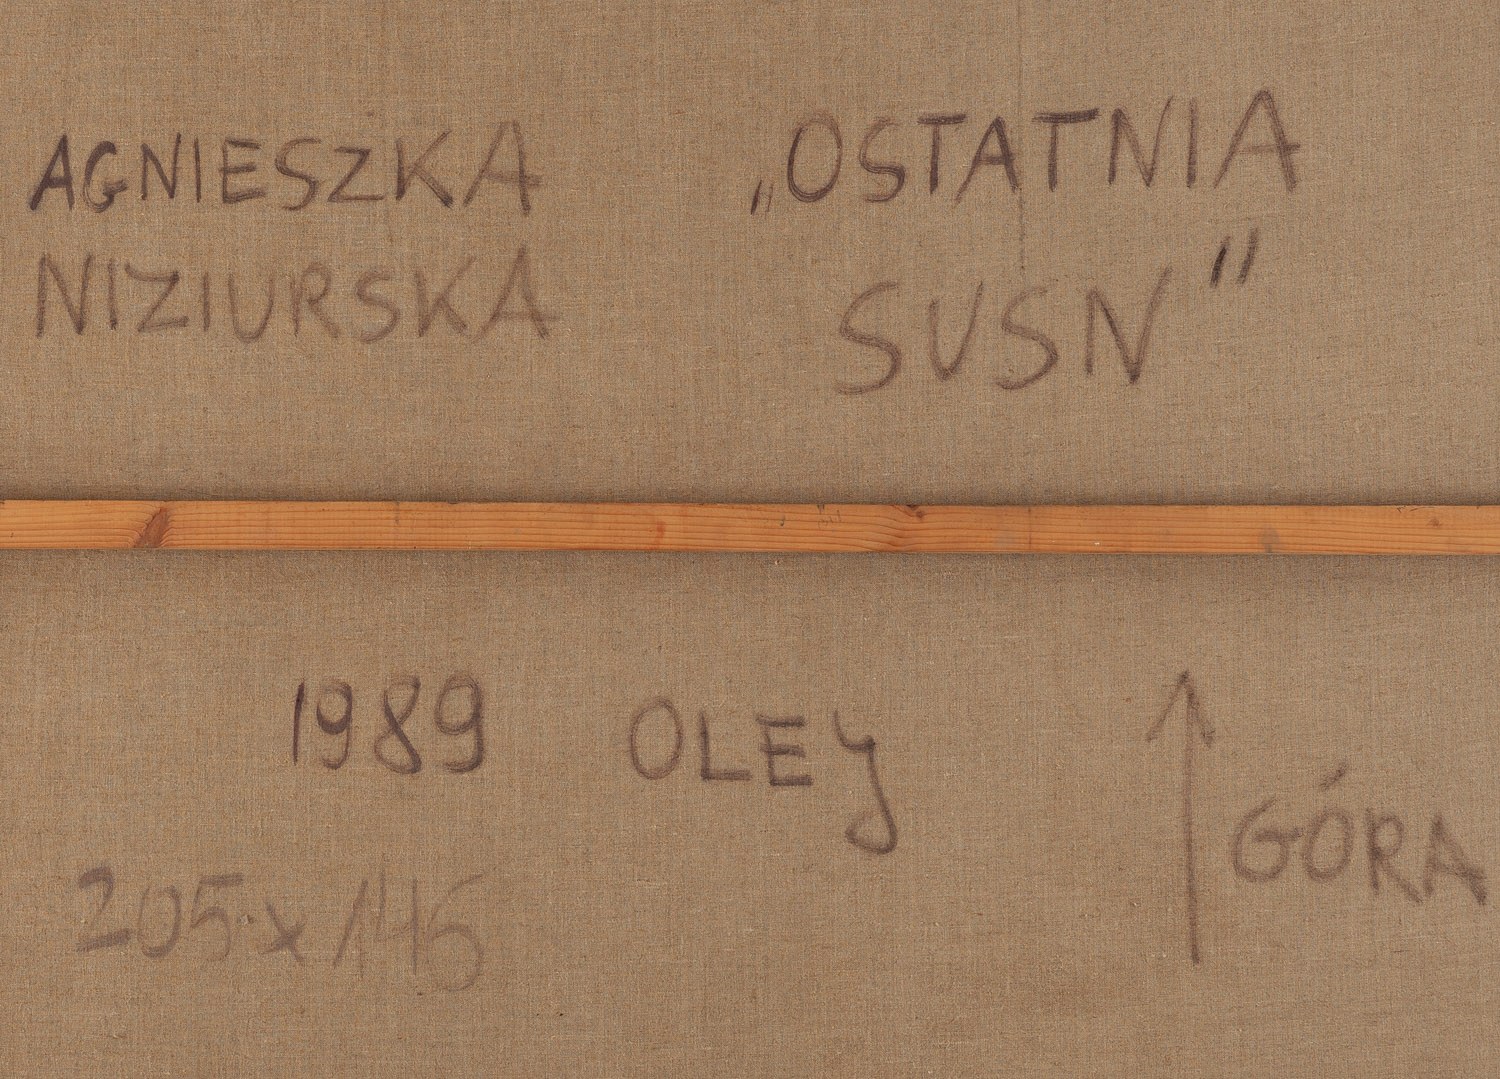 AGNIESZKA
NIZIURSKA
„OSTATNIA
SUSN"
1989 OLEJ
205x145
↑ GÓRA